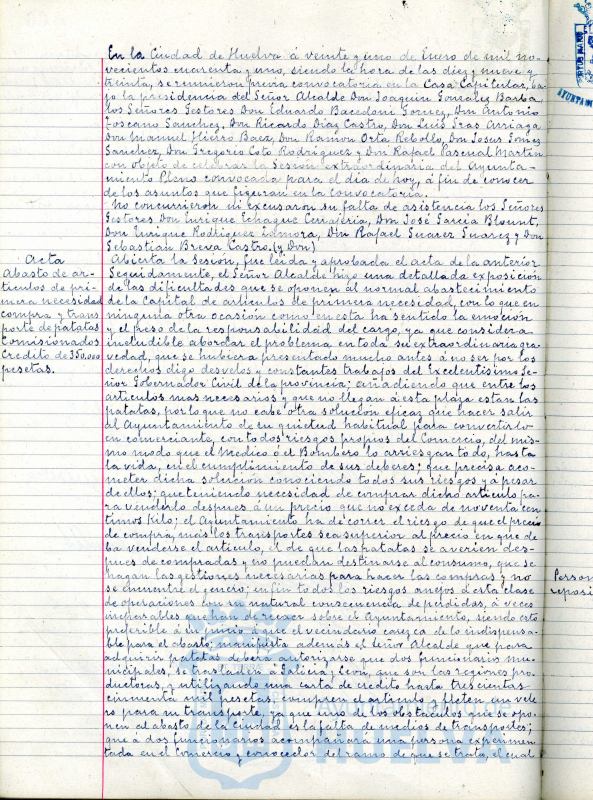 En la Ciudad de Huelva á veinte y uno de Enero de mil no-
vecientos cuarenta y uno, siendo la hora de las diez y nueve y
treinta, se reunieron previa convocatoria en la Casa Capitular, ba-
jo la presidencia del Señor Alcalde Don Joaquin Gonzalez Barba,
los Señores Gestores Don Eduardo Bacedoni Gomez, Don Antonio
Toscano Sanchez, Don Ricardo Diaz Castro, Don Luis Tras Arriaga
Don Manuel Hierro Baez, Don Ramon Orta Rebollo, Don Josus Gomez
Sanchez, Don Gregorio Coto Rodriguez y Don Rafael Pascual Martin
con objeto de celebrar la Sesión extraordinaria del Ayunta-
miento Pleno convocada para el dia de hoy, á fin de conocer
de los asuntos que figuran en la convocatoria.
No concurrieron ni excusaron su falta de asistencia los Señores
Gestores Don Enrique Echague Cerrajeria, Don José Garcia Blount,
Don Enrique Rodriguez Zamora, Don Rafael Suarez Suarez y Don
Sebastian Breva Castro. (y Don)
Acta
Abasto de ar-
ticulos de pri-
mera necesidad
compra y trans
porte de patatas
Comisionados
Credito de 350.000
pesetas.
Abierta la Sesión, fue leida y aprobada el acta de la anterior
Seguidamente, el Señor Alcalde hizo una detallada exposición
de las dificultades que se oponen al normal abastecimiento
de la Capital de articulos de primera necesidad, con lo que en
ninguna otra ocasión como en esta ha sentido la emoción
y el peso de la responsabilidad del cargo, ya que considera
ineludible abordar el problema en toda su extraordinaria gra-
vedad, que se hubiera presentado mucho antes á no ser por los
derechos digo desvelos y constantes trabajos del Excelentisimo Se-
ñor Gobernador Civil de la provincia; añadiendo que entre los
articulos mas necesarios y que no llegan á esta plaza estan las
patatas, por lo que no cabe otra solución eficaz que hacer salir
al Ayuntamiento de su quietud habitual para convertirlo
en comerciante, con todos riesgos propios del Comercio, del mis-
mo modo que el Medico ó el Bombero lo arriesgan todo, hasta
la vida, en el cumplimiento de sus deberes; que precisa aco-
meter dicha solución conociendo todos sus riesgos y á pesar
de ellos; que teniendo necesidad de comprar dicho articulo pa-
ra venderlo despues á un precio que no exceda de noventa cen-
timos Kilo; el Ayuntamiento ha de correr el riesgo de que el precio
de compra, más los transportes sea superior al precio en que de-
ba venderse el articulo, el de que las patatas se averien des-
pues de compradas y no puedan destinarse al consumo, que se
hagan las gestiones necesarias para hacer las compras y no
se encuentre el genero; en fin todos los riesgos anejos á esta clase
de operaciones con su natural consecuencia de perdidas, á veces
que han de recaer sobre el Ayuntamiento, siendo esto
preferible á su juicio á que el vecindario carezca de lo indispensa-
ble para el abasto, manifiesta además el Señor Alcalde que para
adquirir patatas deberá autorizarse que dos funcionarios mu-
nicipales, se trasladen á Galicia y que son las regiones pro-
ductoras, y utilizando una carta de credito hasta trescientas
cincuenta mil pesetas, compren el articulo y fleten un vele-
ro para su transporte, ya que uno de los obstaculos que se opo-
nen al abasto de la ciudad es la falta de medios de transportes;
que á dos funcionarios acompañará una persona experimen-
tada en el Comercio y conocedor del ramo de que se trata, el cual
Person
reposi
AYUNTAM